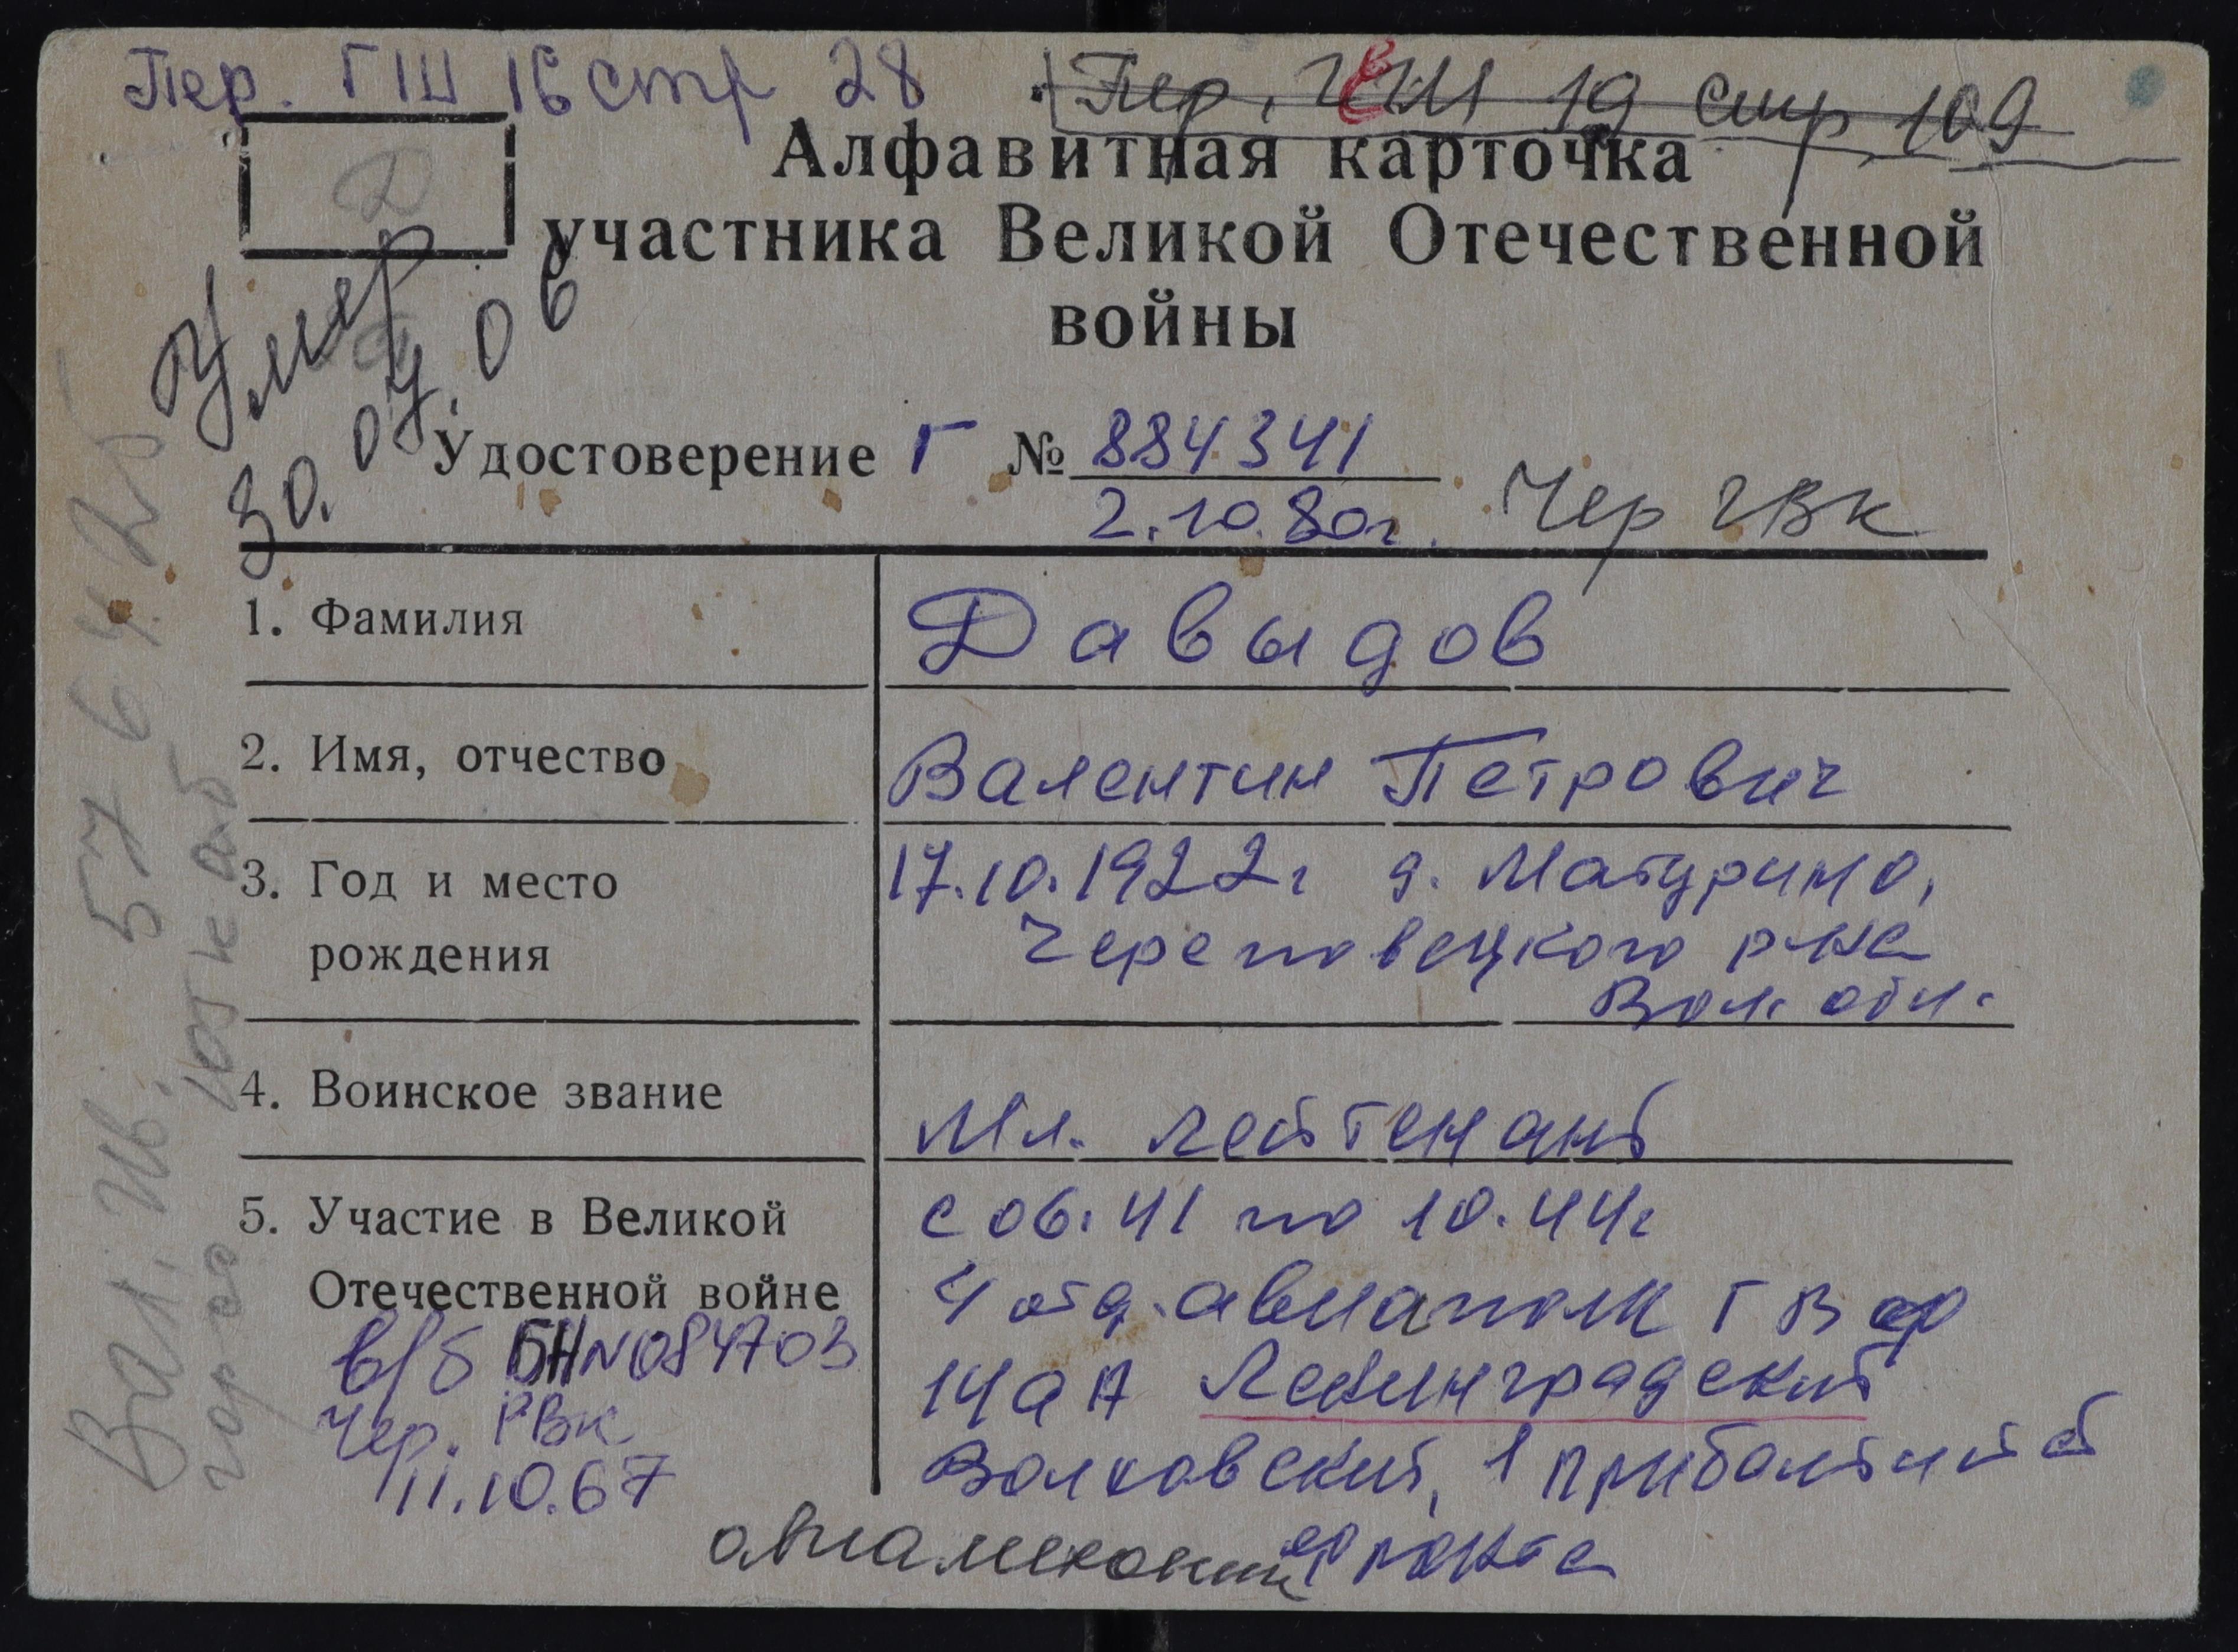 Пер. ГШ 16 стр 28
Пер. 19 стр. 109
Д
Алфавитная карточка
участника Великой Отечественной
войны
Умер
30.04.06
Удостоверение Г № 884341
2.10.80г. Чер ГВК
1. Фамилия Давыдов
2. Имя, отчество Валентин Петрович
3. Год и место
рождения
17.10.1922г д. Матурино,
Череповецкого р-на
Вол. обл.
4. Воинское звание Мл. лейтенант
5. Участие в Великой
Отечественной войне
с 06.41 по 10.44г
4 отд. авиаполк ГВФ
14 а А Ленинградский
Волховский, 1 прибалтийс
фронта
авиамеханик
в/б БН N084703
Чер. РВК
11.10.67
57 64 25